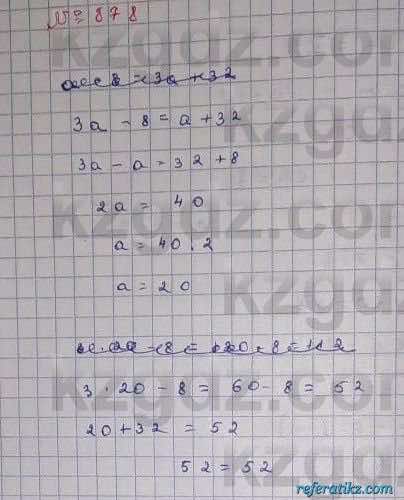 № 878
3a - 8 = a + 32
3a - a = 32 + 8
2a = 40
a = 40 : 2
a = 20
3 · 20 - 8 = 60 - 8 = 52
20 + 32 = 52
52 = 52
kzgdz.com
referatikz.com